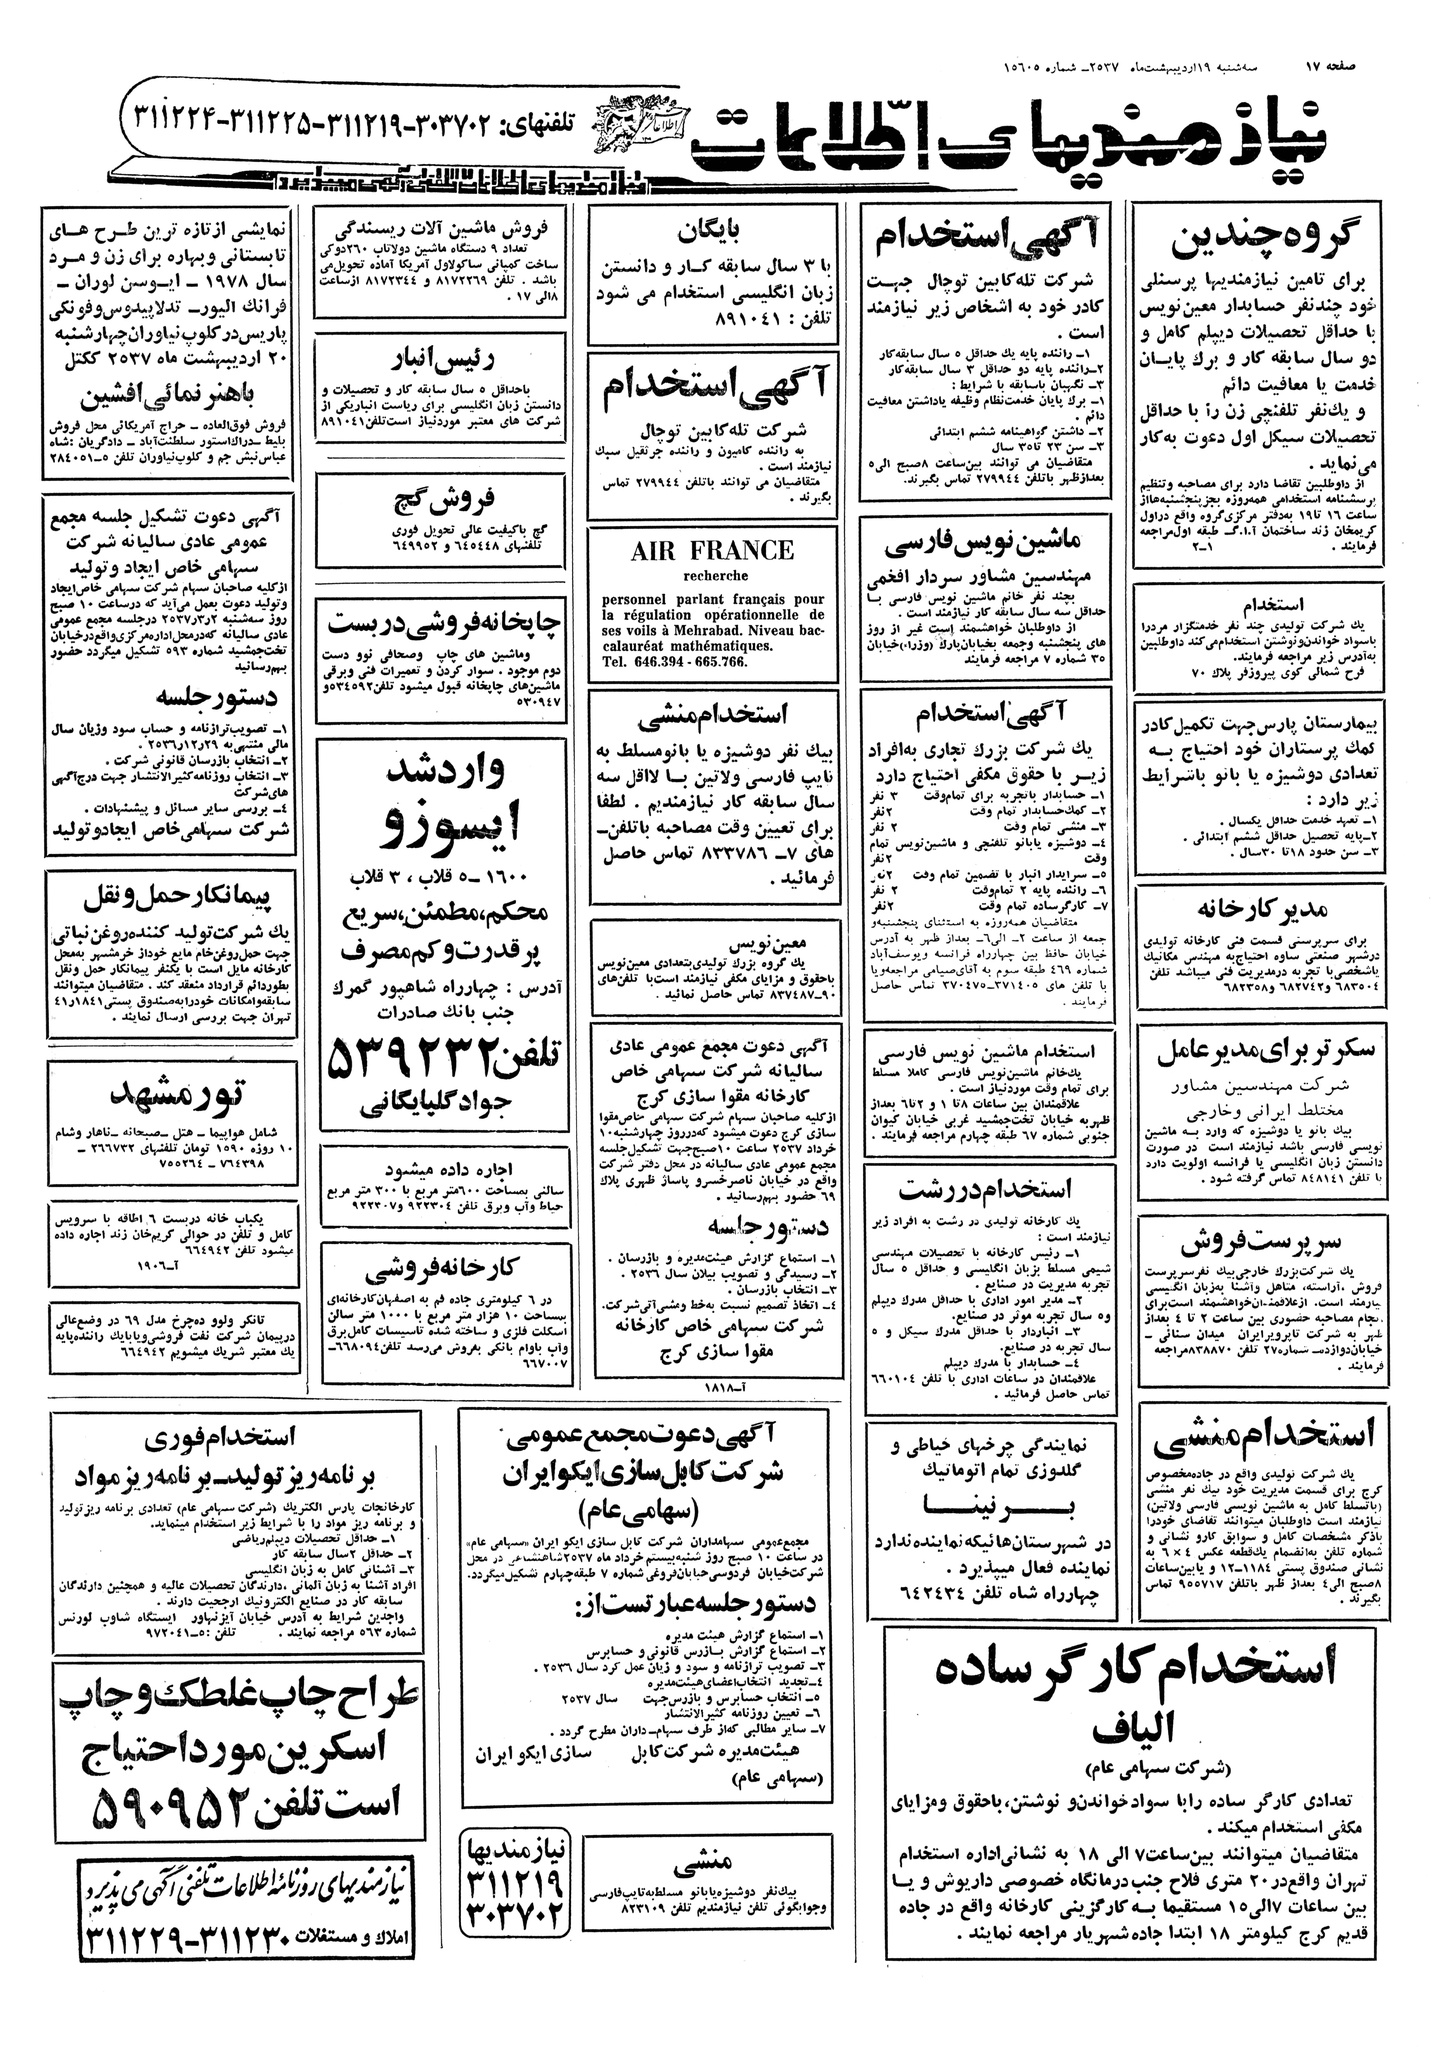 صفحه ۱۷
سه‌شنبه ۱۹ اردیبهشت‌ماه ۲۵۳۷ـ شماره ۱۵۶۰۵
نیازمندیهای اطلاعات
تلفنهای: ۳۰۳۷۰۲-۳۱۱۲۱۹-۳۱۱۲۲۵-۳۱۱۲۲۴
نیازمندیهای اطلاعات تلفنی آگهی میپذیرد
گروه چندین
برای تامین نیازمندیها پرسنلی
خود چندنفر حسابدار معین‌نویس
با حداقل تحصیلات دیپلم کامل و
دو سال سابقه کار و برگ پایان
خدمت یا معافیت دائم
و یك‌نفر تلفنچی زن را با حداقل
تحصیلات سیکل اول دعوت به‌کار
می‌نماید .
از داوطلبین تقاضا دارد برای مصاحبه وتنظیم
پرسشنامه استخدامی همه‌روزه بجز پنجشنبه‌ها از
ساعت ۱۶ تا ۱۹ به‌دفتر مرکزی گروه واقع دراول
کریمخان زند ساختمان آ.ا.گ‍ـ طبقه اول مراجعه
فرمایند . ۱ـ۲
استخدام
یك شرکت تولیدی چند نفر خدمتگزار مردرا
باسواد خواندن‌ونوشتن استخدام‌می‌کند داوطلبین
به‌آدرس زیر مراجعه فرمایند.
فرح شمالی کوی پیروزفر پلاك ۷۰
بیمارستان پارس‌جهت تکمیل کادر
کمك پرستاران خود احتیاج به
تعدادی دوشیزه یا بانو باشرایط
زیر دارد :
۱ـ تعهد خدمت حداقل یکسال .
۲ـ پایه تحصیل حداقل ششم ابتدائی .
۳ـ سن حدود ۱۸ تا ۳۰ سال .
مدیر کارخانه
برای سرپرستی قسمت فنی کارخانه تولیدی
درشهر صنعتی ساوه احتیاج‌به مهندس مکانیك
یاشخصی‌با تجربه درمدیریت فنی میباشد تلفن
۶۸۳۵۰۴ و۶۸۲۷۴۲ و۶۸۲۳۵۸
سکرتر برای مدیرعامل
شرکت مهندسین مشاور
مختلط ایرانی وخارجی
بیك بانو یا دوشیزه که وارد به ماشین
نویسی فارسی باشد نیازمند است در صورت
دانستن زبان انگلیسی یا فرانسه اولویت دارد
با تلفن ۸۴۸۱۴۱ تماس گرفته شود .
سرپرست فروش
یك شرکت‌بزرك خارجی‌بیك نفرسرپرست
فروش ،آراسته، متاهل وآشنا به‌زبان انگلیسی
نیازمند است. ازعلاقمندان‌خواهشمند است‌برای
انجام مصاحبه حضوری بین ساعت ۲ تا ۴ بعداز
ظهر به شرکت تاپروپرایران میدان سنائی ـ
خیابان‌دوازدهم‌شماره۲۷ تلفن ۸۳۸۸۷۰مراجعه
فرمایند .
استخدام منشی
یك شرکت تولیدی واقع در جاده‌مخصوص
کرج برای قسمت مدیریت خود بیك نفر منشی
(باتسلط کامل به ماشین نویسی فارسی ولاتین)
نیازمند است داوطلبان میتوانند تقاضای خودرا
باذکر مشخصات کامل و سوابق کارو نشانی و
شماره تلفن به‌انضمام یك‌قطعه عکس ۴ × ۶ به
نشانی صندوق پستی ۱۱۸۴ـ۱۲ و یابین‌ساعات
۸صبح الی۴ بعداز ظهر باتلفن ۹۵۵۷۱۷ تماس
بگیرند .
آگهی استخدام
شرکت تله‌کابین توچال جهت
کادر خود به اشخاص زیر نیازمند
است .
۱ـ راننده پایه یك حداقل ۵ سال سابقه‌کار
۲ـراننده پایه دو حداقل ۳ سال سابقه‌کار
۳ـ نگهبان باسابقه با شرایط :
۱ـ برك پایان خدمت‌نظام وظیفه یاداشتن معافیت
دائم .
۲ـ داشتن گواهینامه ششم ابتدائی
۳ـ سن ۲۳ تا۳۵ سال
متقاضیان می توانند بین‌ساعت ۸صبح الی۵
بعدازظهر باتلفن ۲۷۹۹۴۴ تماس بگیرند.
ماشین نویس فارسی
مهندسین مشاور سردار افخمی
بچند نفر خانم ماشین نویس فارسی با
حداقل سه سال سابقه کار نیازمند است .
از داوطلبان خواهشمند است غیر از روز
های پنجشنبه وجمعه بخیابان‌پارك (وزراء)خیابان
۳۵ شماره ۷ مراجعه فرمایند
آگهی استخدام
یك شرکت بزرك تجاری به‌افراد
زیر با حقوق مکفی احتیاج دارد
۱ـ حسابدار باتجربه برای تمام‌وقت ۳ نفر
۲ـ کمك‌حسابدار تمام وقت ۲نفر
۳ـ منشی تمام وقت ۲ نفر
۴ـ دوشیزه یابانو تلفنچی و ماشین‌نویس تمام
وقت ۲نفر
۵ـ سرایدار انبار با تضمین تمام وقت ۲نفر
۶ـ راننده پایه ۲ تمام‌وقت ۲ نفر
۷ـ کارگرساده تمام وقت ۲نفر
متقاضیان همه‌روزه به استثنای پنجشنبه‌و
جمعه از ساعت ۲ـ الی۶ـ بعداز ظهر به آدرس
خیابان حافظ بین چهارراه فرانسه ویوسف‌آباد
شماره ۴۶۹ طبقه سوم به آقای‌صیامی مراجعه‌ویا
با تلفن های ۳۷۱۴۰۵ـ۳۷۰۴۷۵ تماس حاصل
فرمایند .
استخدام ماشین نویس فارسی
یك‌خانم ماشین‌نویس فارسی کاملا مسلط
برای تمام وقت موردنیاز است .
علاقمندان بین ساعات ۸تا ۱ و ۲تا۶ بعداز
ظهربه خیابان تخت‌جمشید غربی خیابان کیوان
جنوبی شماره ۶۷ طبقه چهارم مراجعه فرمایند .
استخدام در رشت
یك کارخانه تولیدی در رشت به افراد زیر
نیازمند است :
۱ـ رئیس کارخانه با تحصیلات مهندسی
شیمی مسلط بزبان انگلیسی و حداقل ۵ سال
تجربه مدیریت در صنایع .
۲ـ مدیر امور اداری با حداقل مدرك دیپلم
و۵ سال تجربه موثر در صنایع.
۳ـ انباردار با حداقل مدرك سیکل و ۵
سال تجربه در صنایع.
۴ـ حسابدار با مدرك دیپلم
علاقمندان در ساعات اداری با تلفن ۶۶۰۱۰۴
تماس حاصل فرمائید .
نمایندگی چرخهای خیاطی و
گلدوزی تمام اتوماتیك
برنینا
در شهرستان‌هائیکه نماینده ندارد
نماینده فعال میپذیرد .
چهارراه شاه تلفن ۶۴۲۴۳۴
استخدام کارگر ساده
الیاف
(شرکت سهامی عام)
تعدادی کارگر ساده رابا سوادخواندن‌و نوشتن،باحقوق ومزایای
مکفی استخدام میکند .
متقاضیان میتوانند بین‌ساعت۷ الی ۱۸ به نشانی‌اداره استخدام
تهران واقع‌در۲۰ متری فلاح جنب‌درمانگاه خصوصی داریوش و یا
بین ساعات ۷الی۱۵ مستقیما به کارگزینی کارخانه واقع در جاده
قدیم کرج کیلومتر ۱۸ ابتدا جاده‌شهریار مراجعه نمایند .
بایگان
با ۳ سال سابقه کار و دانستن
زبان انگلیسی استخدام می شود
تلفن : ۸۹۱۰۴۱
آگهی استخدام
شرکت تله‌کابین توچال
به راننده کامیون و راننده جرثقیل سبك
نیازمند است .
متقاضیان می توانند باتلفن ۲۷۹۹۴۴ تماس
بگیرند .
AIR FRANCE
recherche
personnel parlant français pour
la régulation opérationnelle de
ses voils à Mehrabad. Niveau bac-
calauréat mathématiques.
Tel. 646.394 - 665.766.
استخدام منشی
بیك نفر دوشیزه یا بانومسلط به
تایپ فارسی ولاتین با لااقل سه
سال سابقه کار نیازمندیم . لطفا
برای تعیین وقت مصاحبه باتلفن‌ـ
های ۷ـ ۸۳۳۷۸۶ تماس حاصل
فرمائید .
معین نویس
یك گروه بزرك تولیدی‌بتعدادی معین‌نویس
باحقوق و مزایای مکفی نیازمند است‌با تلفن‌های
۹۰ـ۸۳۷۴۸۷ تماس حاصل نمائید .
آگهی دعوت مجمع عمومی عادی
سالیانه شرکت سهامی خاص
کارخانه مقوا سازی کرج
ازکلیه صاحبان سهام شرکت سهامی خاص‌مقوا
سازی کرج دعوت میشود که‌درروز چهارشنبه۱۰
خرداد ماه ۲۵۳۷ ساعت ۱۰صبح‌جهت تشکیل‌جلسه
مجمع عمومی عادی سالیانه در محل دفتر شرکت
واقع در خیابان ناصرخسرو پاساژ ظهری پلاك
۶۹ حضور بهم‌رسانید .
دستورجلسه
۱ـ استماع گزارش هیئت‌مدیره و بازرسان .
۲ـ رسیدگی و تصویب بیلان سال ۲۵۳۶ .
۳ـ انتخاب بازرسان .
۴ـ اتخاذ تصمیم نسبت به‌خط ومشی‌آتی‌شرکت.
شرکت سهامی خاص کارخانه
مقوا سازی کرج
آـ۱۸۱۸
آگهی دعوت مجمع عمومی
شرکت کابل سازی ایکو ایران
(سهامی عام)
مجمع‌عمومی سهامداران شرکت کابل سازی ایکو ایران «سهامی عام»
در ساعت ۱۰ صبح روز شنبه‌بیستم خرداد ماه ۲۵۳۷شاهنشاهی در محل
شرکت‌خیابان فردوسی‌خیابان‌فروغی شماره ۷ طبقه‌چهارم تشکیل‌میگردد.
دستور جلسه عبارتست از:
۱ـ استماع گزارش هیئت مدیره
۲ـ استماع گزارش بازرس قانونی و حسابرس
۳ـ تصویب ترازنامه و سود و زیان عمل کرد سال ۲۵۳۶ .
۴ـتجدید انتخاب‌اعضای‌هیئت‌مدیره
۵ـ انتخاب حسابرس و بازرس‌جهت سال ۲۵۳۷
۶ـ تعیین روزنامه کثیرالانتشار
۷ـ سایر مطالبی که‌از طرف سهام‌ـداران مطرح گردد .
هیئت‌مدیره شرکت‌کابل سازی ایکو ایران
(سهامی عام)
نیازمندیها
۳۱۱۲۱۹
۳۰۳۷۰۲
منشی
بیك‌نفر دوشیزه‌یابانو مسلط به‌تایپ‌فارسی
وجوابگوئی تلفن نیازمندیم تلفن ۸۲۳۱۰۹
فروش ماشین آلات ریسندگی
تعداد ۹ دستگاه ماشین دولاتاب ۲۶۰دوکی
ساخت کمپانی ساکولاول آمریکا آماده تحویل‌می
باشد . تلفن ۸۱۷۲۲۶۹ و ۸۱۷۲۳۴۴ ازساعت
۸الی ۱۷ .
رئیس انبار
باحداقل ۵ سال سابقه کار و تحصیلات و
دانستن زبان انگلیسی برای ریاست انباریکی از
شرکت های معتبر موردنیاز است‌تلفن۸۹۱۰۴۱
فروش گچ
گچ باکیفیت عالی تحویل فوری
تلفنهای ۶۴۵۴۴۸ و ۶۴۹۹۵۲
چاپخانه فروشی دربست
وماشین های چاپ وصحافی نوو دست
دوم موجود . سوار کردن و تعمیرات فنی وبرقی
ماشین‌های چاپخانه قبول میشود تلفن۵۳۴۵۹۲و
۵۳۰۹۴۷
وارد شد
ایسوزو
۱۶۰۰ ـ۵ قلاب ، ۳ قلاب
محکم،مطمئن،سریع
پر قدرت و کم مصرف
آدرس : چهارراه شاهپور گمرك
جنب بانك صادرات
تلفن ۵۳۹۲۳۲
جواد گلپایگانی
اجاره داده میشود
سالنی بمساحت ۶۰۰متر مربع با ۳۰۰ متر مربع
حیاط وآب وبرق تلفن ۹۲۲۳۰۴ و۹۲۲۳۰۷
کارخانه فروشی
در ۶ کیلومتری جاده قم به اصفهان‌کارخانه‌ای
بمساحت ۱۰ هزار متر مربع با ۱۰۰۰ متر سالن
اسکلت فلزی و ساخته شده تاسیسات کامل‌برق
وآب باوام بانکی بفروش می‌رسد تلفن۶۶۸۰۹۴ـ
۶۶۷۰۰۷
نمایشی از تازه ترین طرح های
تابستانی وبهاره برای زن و مرد
سال ۱۹۷۸ ـ ایوسن لوران ـ
فرانك الیورـ تدلاپیدوس‌وفونکی
پاریس‌درکلوپ نیاوران‌چهارشنبه
۲۰ اردیبهشت ماه ۲۵۳۷ ککتل
باهنر نمائی افشین
فروش فوق‌العاده ـ حراج آمریکائی محل فروش
بلیط ـدراك‌استور سلطنت‌آباد ـ دادگریان :شاه
عباس‌نبش جم و کلوپ‌نیاوران تلفن ۵ـ۲۸۴۰۵۱
آگهی دعوت تشکیل جلسه مجمع
عمومی عادی سالیانه شرکت
سهامی خاص ایجاد وتولید
ازکلیه صاحبان سهام شرکت سهامی خاص‌ایجاد
وتولید دعوت بعمل می‌آید که درساعت ۱۰ صبح
روز سه‌شنبه ۲ر۳ر۲۵۳۷ درجلسه مجمع عمومی
عادی سالیانه که‌درمحل‌اداره‌مرکزی‌واقع‌درخیابان
تخت‌جمشید شماره ۵۹۳ تشکیل میگردد حضور
بهم‌رسانید
دستور جلسه
۱ـ تصویب‌ترازنامه و حساب سود وزیان سال
مالی منتهی‌به ۲۹ر۱۲ر۲۵۳۶ .
۲ـ انتخاب بازرسان قانونی شرکت .
۳ـ انتخاب روزنامه کثیرالانتشار جهت درج‌آگهی
های‌شرکت
۴ـ بررسی سایر مسائل و پیشنهادات .
شرکت سهامی خاص ایجادوتولید
پیمانکار حمل و نقل
یك شرکت تولید کننده روغن نباتی
جهت حمل‌روغن‌خام مایع خوداز خرمشهر به‌محل
کارخانه مایل است با یکنفر پیمانکار حمل ونقل
بطوردائم قرارداد منعقد کند . متقاضیان میتوانند
سابقه‌وامکانات خودرابه‌صندوق پستی۱۸۴۱ر۴۱
تهران جهت بررسی ارسال نمایند .
تور مشهد
شامل هواپیما ـ هتل ـصبحانه ـناهار وشام
۱۰ روزه ۱۵۹۰ تومان تلفنهای ۲۶۶۷۳۲ ـ
۷۶۴۳۹۸ ـ ۷۵۵۲۶۴
یکباب خانه دربست ۶ اطاقه با سرویس
کامل و تلفن در حوالی کریم‌خان زند اجاره داده
میشود تلفن ۶۶۴۹۴۲
آـ۱۹۰۶
تانکر ولوو ده‌چرخ مدل ۶۹ در وضع‌عالی
درپیمان شرکت نفت فروشی‌ویابایك راننده‌پایه
یك معتبر شریك میشویم ۶۶۴۹۴۲
استخدام فوری
برنامه ریز تولیدـ برنامه ریز مواد
کارخانجات پارس الکتریك (شرکت سهامی عام) تعدادی برنامه ریزتولید
و برنامه ریز مواد را با شرایط زیر استخدام مینماید.
۱ـ حداقل تحصیلات دیپلم‌ریاضی
۲ـ حداقل ۲سال سابقه کار
۳ـ آشنائی کامل به زبان انگلیسی
افراد آشنا به زبان آلمانی ،دارندگان تحصیلات عالیه و همچنین دارندگان
سابقه کار در صنایع الکترونیك ارجحیت دارند .
واجدین شرایط به آدرس خیابان آیزنهاور ایستگاه شاوب لورنس
شماره ۵۶۳ مراجعه نمایند . تلفن :۵ـ۹۷۲۰۴۱
طراح چاپ غلطك و چاپ
اسکرین مورد احتیاج
است تلفن ۵۹۰۹۵۲
نیازمندیهای روزنامه اطلاعات تلفنی آگهی می پذیرد
املاك و مستغلات ۳۱۱۲۳۰-۳۱۱۲۲۹